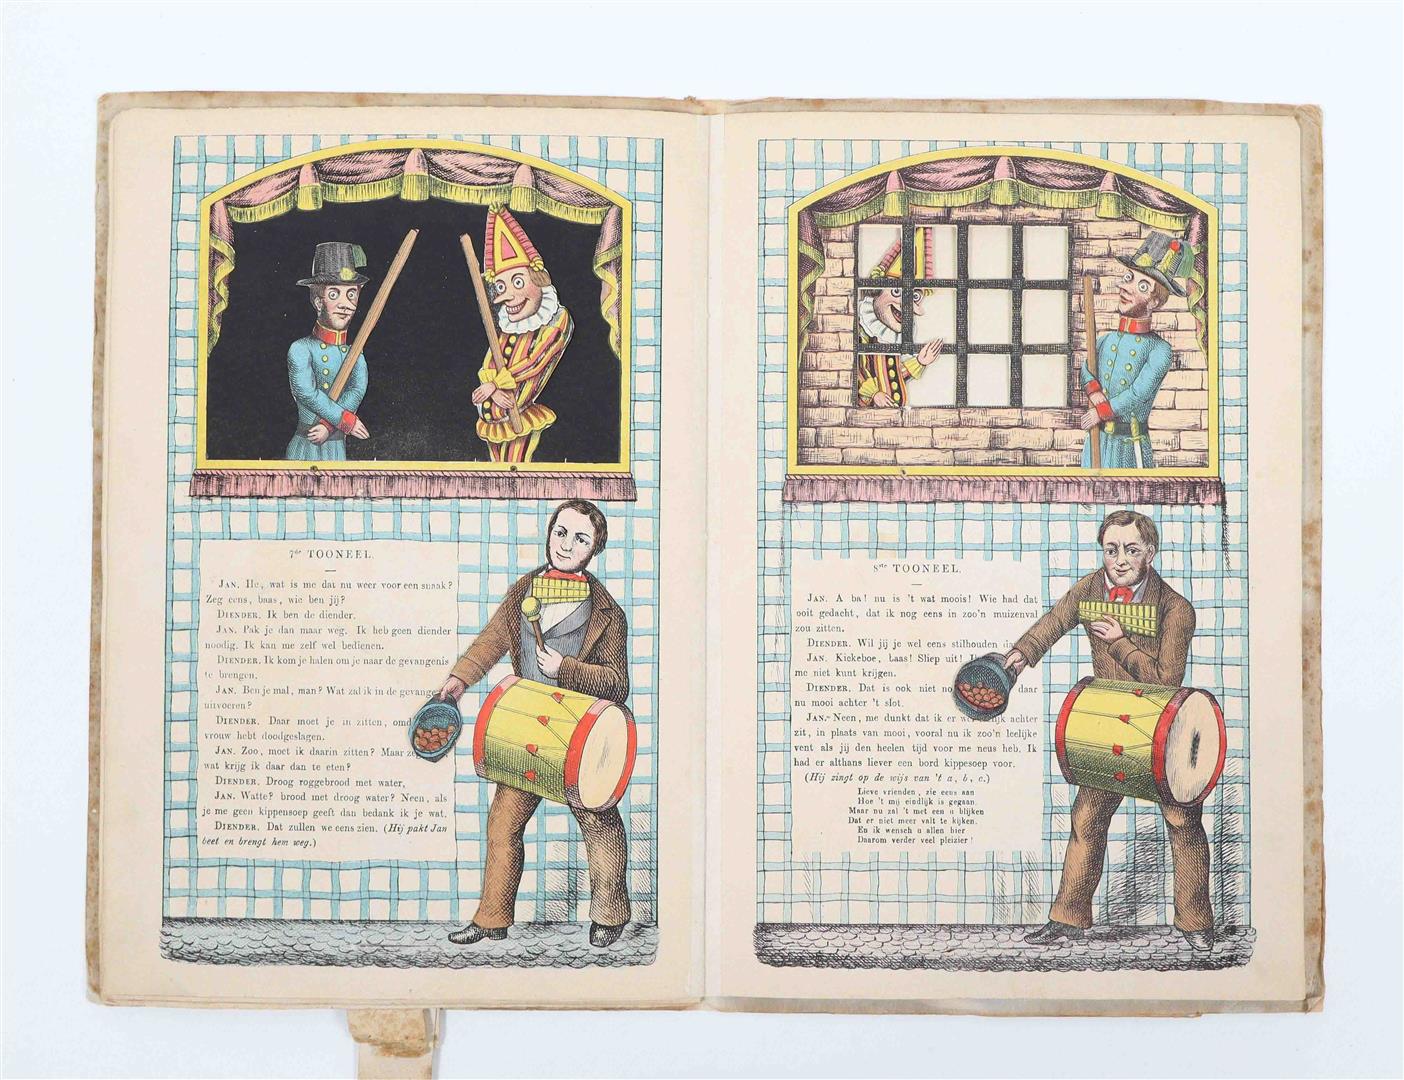 7de TOONEEL.
JAN. He, wat is me dat nu weer voor een snaak?
Zeg eens, baas, wie ben jij?
DIENDER. Ik ben de diender.
JAN. Pak je dan maar weg. Ik heb geen diender
noodig. Ik kan me zelf wel bedienen.
DIENDER. Ik kom je halen om je naar de gevangenis
te brengen.
JAN. Ben je mal, man? Wat zal ik in de gevange
uitvoeren?
DIENDER. Daar moet je in zitten, omd
vrouw hebt doodgeslagen.
JAN. Zoo, moet ik daarin zitten? Maar
wat krijg ik daar dan te eten?
DIENDER. Droog roggebrood met water,
JAN. Watte? brood met droog water? Neen, als
je me geen kippensoep geeft dan bedank ik je wat.
DIENDER. Dat zullen we eens zien. (Hij pakt Jan
beet en brengt hem weg.)
8ste TOONEEL.
JAN. A ba! nu is 't wat moois! Wie had dat
ooit gedacht, dat ik nog eens in zoo'n muizenval
zou zitten.
DIENDER. Wil jij je wel eens stilhouden
JAN. Kiekeboe, baas! Sliep uit!
me niet kunt krijgen.
DIENDER. Dat is ook niet daar
nu mooi achter 't slot.
JAN. Neen, me dunkt dat ik er achter
zit, in plaats van mooi, vooral nu ik zoo'n leelijke
vent als jij den heelen tijd voor me neus heb. Ik
had er althans liever een bord kippesoep voor.
(Hij zingt op de wijs van 't a, b, c.)
Lieve vrienden, zie eens aan
Hoe 't mij eindlijk is gegaan.
Maar nu zal 't met een u blijken
Dat er niet meer valt te kijken.
En ik wensch u allen hier
Daarom verder veel pleizier!